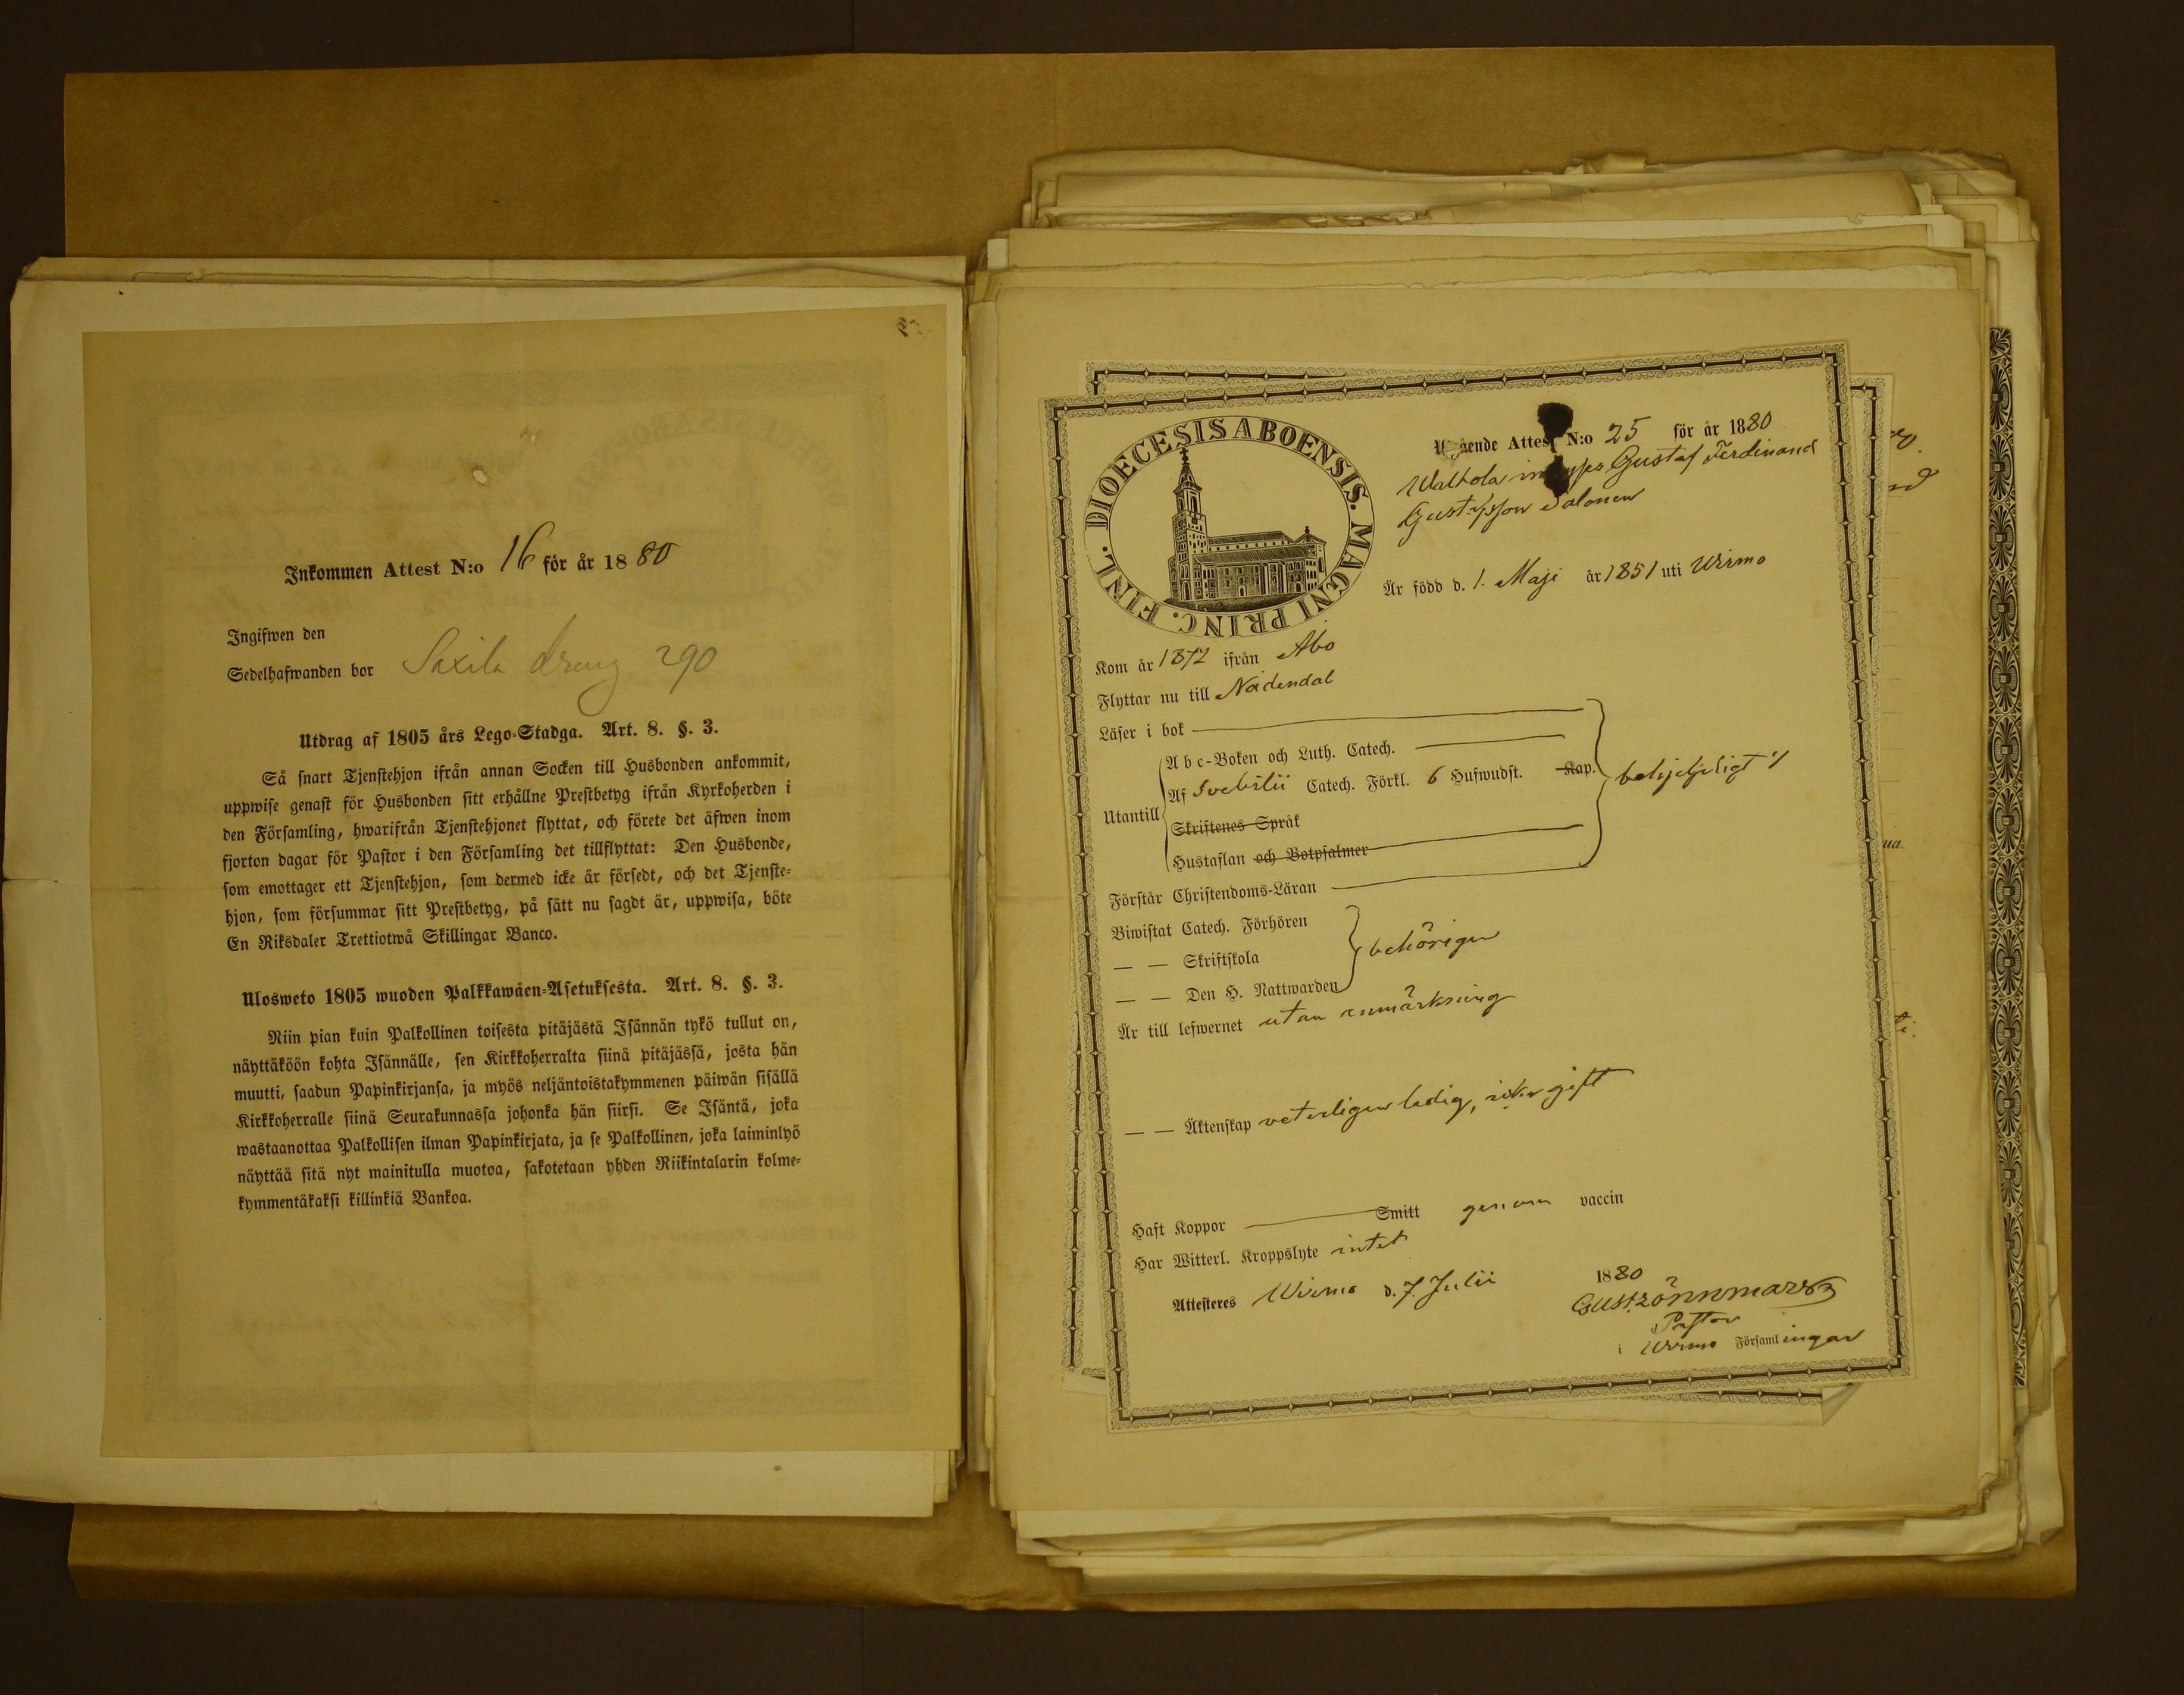 Inkommen Attest N:o 16 för år 1880
Ingifwen den
Sedelhafwanden bor Saxila dreng 290
Utdrag af 1805 års Lego-Stadga. Art. 8. §. 3.
Så snart Tjenstehjon ifrån annan Socken till Husbonden ankommit,
uppwise genast för Husbonden sitt erhållne Prestbetyg ifrån Kyrkoherden i
den Församling, hwarifrån Tjenstehjonet flyttat, och förete det äfwen inom
fjorton dagar för Pastor i den Församling det tillflyttat: Den Husbonde,
som emottager ett Tjenstehjon, som dermed icke är försedt, och det Tjenste-
hjon, som försummar sitt Prestbetyg, på sätt nu sagdt är, uppwisa, böte
En Riksdaler Trettiotwå Skillingar Banco.
Ulosweto 1805 wuoden Palkkawäen-Asetuksesta. Art. 8. §. 3.
Niin pian kuin Palkollinen toisesta pitäjästä Isännän tykö tullut on,
näyttäköön kohta Isännälle, sen Kirkkoherralta siinä pitäjässä, josta hän
muutti, saadun Papinkirjansa, ja myös neljäntoistakymmenen päiwän sisällä
Kirkkoherralle siinä Seurakunnassa johonka hän siirsi. Se Isäntä, joka
wastaanottaa Palkollisen ilman Papinkirjata, ja se Palkollinen, joka laiminlyö
näyttää sitä nyt mainitulla muotoa, sakotetaan yhden Riikintalarin kolme-
kymmentäkaksi killinkiä Bankoa.
DIOECESIS ABOENSIS. MAGNI PRINC. FINL.
Utgående Attest N:o 25 för år 1880
Walkola Gustaf Ferdinand
Gustafsson Salonen
Är född d. 1. Maji år 1851 uti Wirmo
Kom år 1872 ifrån Åbo
Flyttar nu till Nådendal
Läser i bok
Utantill
A b c-Boken och Luth. Catech.
Af Svebilii Catech. Förkl. 6 Hufwudst. Kap.
Skriftenes Språk
Hustaflan och Botpsalmer
Förstår Christendoms-Läran
Biwistat Catech. Förhören
— — Skriftskola behörigen
— — Den H. Nattwarden
Är till lefwernet utan anmärkning
— — Äktenskap veterligen ledig, icke gift
Haft Koppor Smitt genom vaccin
Har Witterl. Kroppslyte intet
Attesteres Wirmo d. 7 Julii 1880
Gust. Lönnmark
Pastor
i Wirmo Församlingar